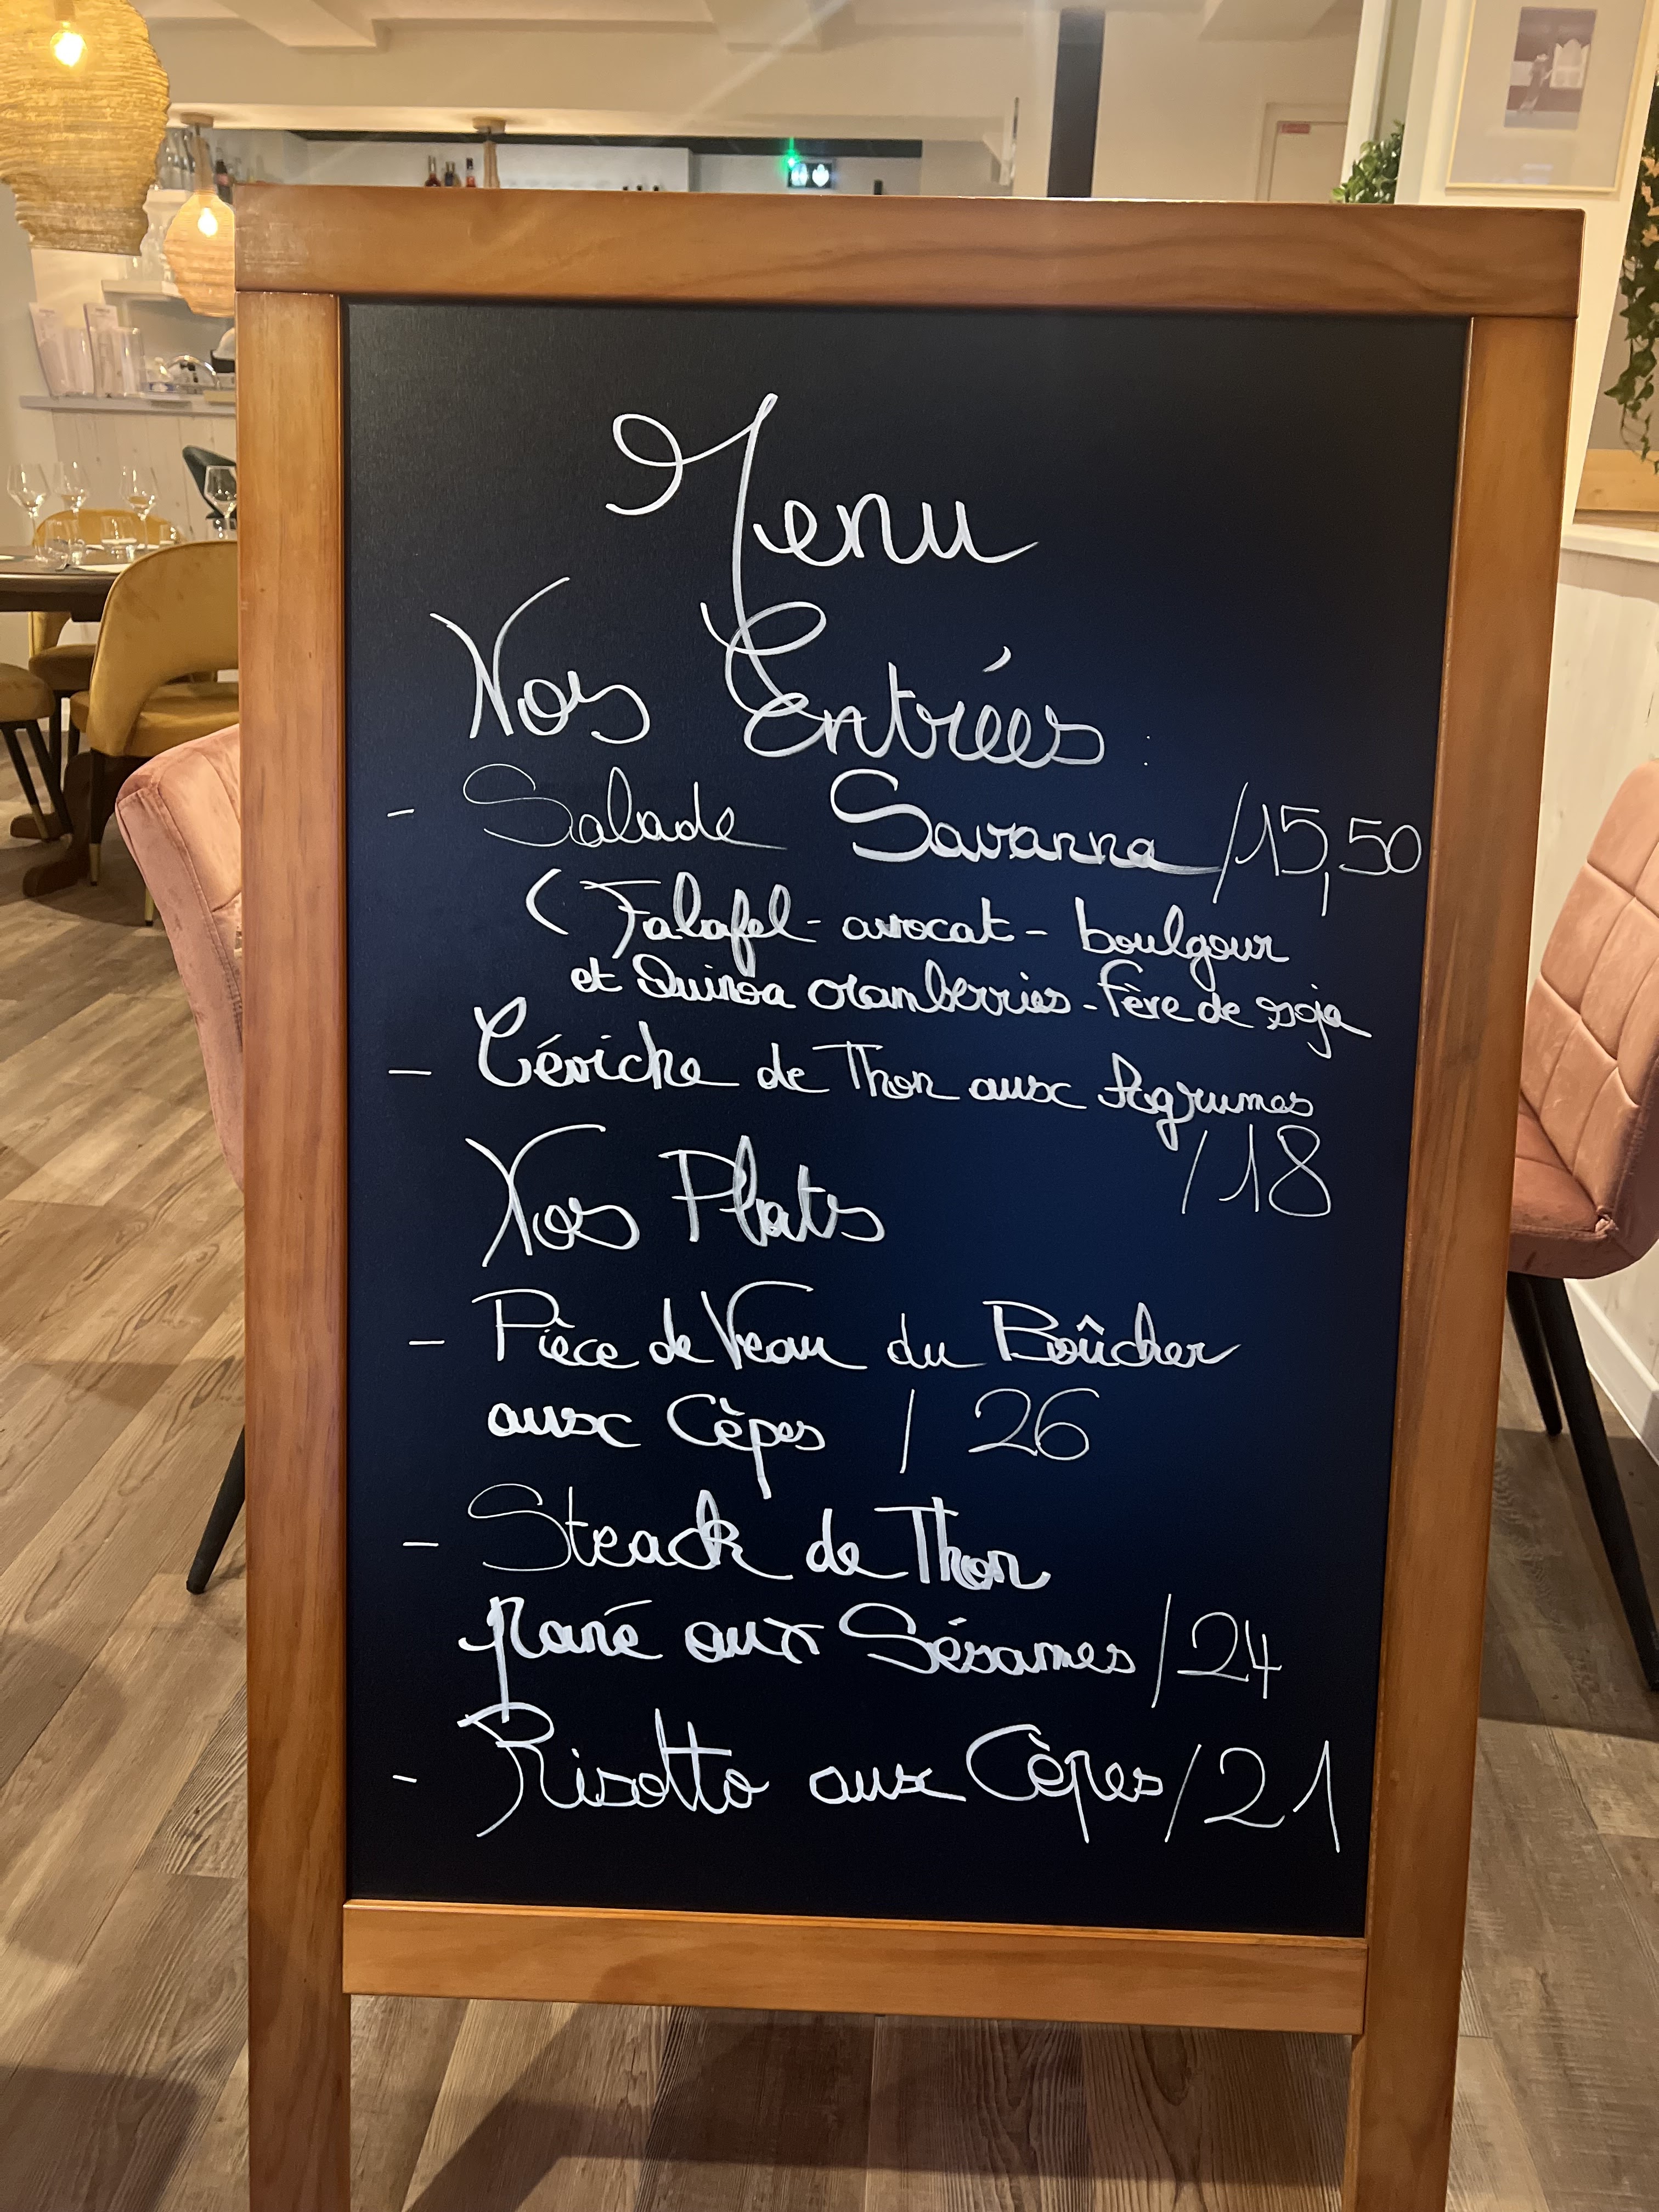 Menu
Nos Entrées :
- Salade Savanna /15,50
( Falafel - avocat - boulgour
et Quinoa cranberries - Fève de soja
- Céviche de Thon aux Agrumes
/18
Nos Plats
- Pièce de Veau du Boûcher
aux Cèpes / 26
- Steack de Thon
pané aux Sésames /24
- Risotto aux Cèpes /21